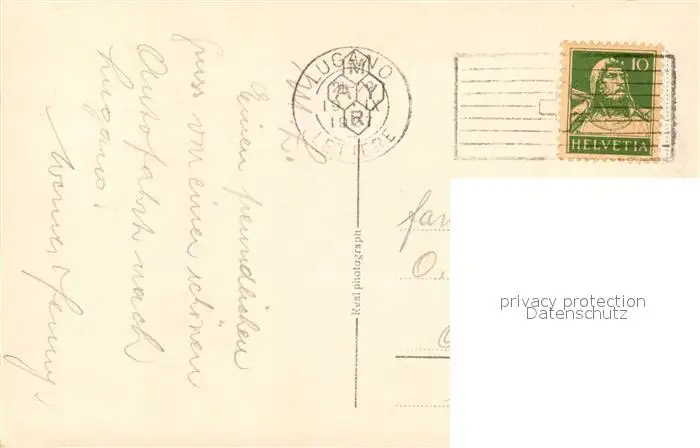 LUGANO
LETTERE
10
HELVETIA
Einen freundlichen
Gruss von einer schönen
Autofahrt nach
Lugano!
Werner & Jenny.
Real photograph
Fam
O.
privacy protection
Datenschutz